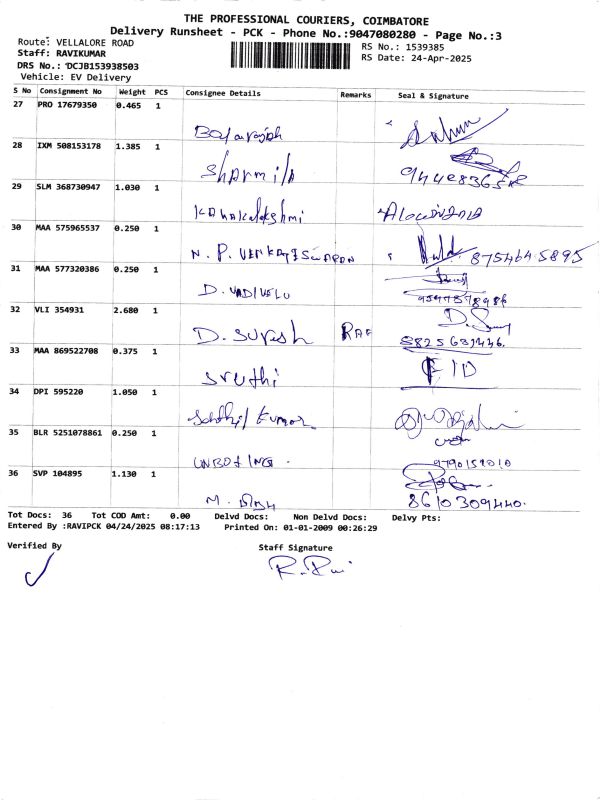 THE PROFESSIONAL COURIERS, COIMBATORE
Delivery Runsheet - PCK - Phone No.:9047080280 - Page No.:3
Route: VELLALORE ROAD
RS No.: 1539385
Staff: RAVIKUMAR
RS Date: 24-Apr-2025
DRS No.: DCJB153938503
Vehicle: EV Delivery
S No Consignment No Weight PCS Consignee Details Remarks Seal & Signature
27 PRO 17679350 0.465 1
28 IXM 508153178 1.385 1
Sharmila
29 SLM 368730947 1.030 1
30 MAA 575965537 0.250 1
N. P. 8754645895
31 MAA 577320386 0.250 1
D. VADIVELU
32 VLI 354931 2.680 1
D. Suresh
33 MAA 869522708 0.375 1
Sruthi
34 DPI 595220 1.050 1
Kumar
35 BLR 5251078861 0.250 1
36 SVP 104895 1.130 1
M. 8610309440.
Tot Docs: 36 Tot COD Amt: 0.00 Delvd Docs: Non Delvd Docs: Delvy Pts:
Entered By :RAVIPCK 04/24/2025 08:17:13 Printed On: 01-01-2009 00:26:29
Verified By Staff Signature